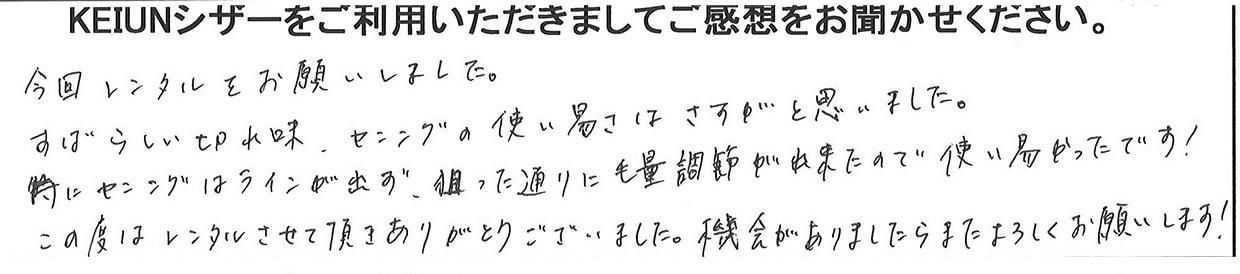 KEIUNシザーをご利用いただきましてご感想をお聞かせください。
今回レンタルをお願いしました。
すばらしい切れ味、センニングの使い易さはさすがと思いました。
特にセンニングはラインが出ず、狙った通りに毛量調節が出来たので使い易かったです!
この度はレンタルさせて頂きありがとうございました。機会がありましたらまたよろしくお願いします!